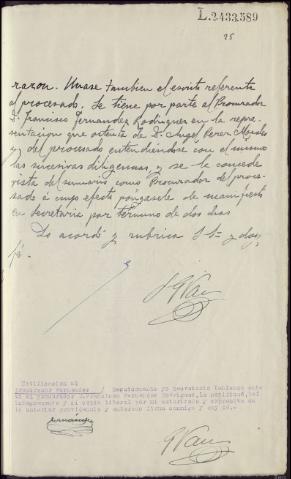 L.2433.589
razon. Unase tambien el escrito referente
al procesado. Se tiene por parte al Procurador
D. Francisco Fernandez Rodriguez en la repre-
sentacion que ostenta de D. Angel Perez
y del procesado entendiendose con el mismo
las sucesivas diligencias, y se le concede
vista del sumario como Procurador del proce-
sado a cuyo efecto póngasele de manifiesto
en Secretaria por termino de dos dias
Lo acordó y rubrica S Sª y doy
fé.
Notificacion al
procurador Fernandez / Seguidamente yo Secretario teniendo ante
mi al procurador D. Francisco Fernandez Rodriguez, le notifiqué, lei
integramente y di copia literal por mi autorizada y expresiva de
la anterior providencia y enterado firma conmigo y doy fé.-
Fernández